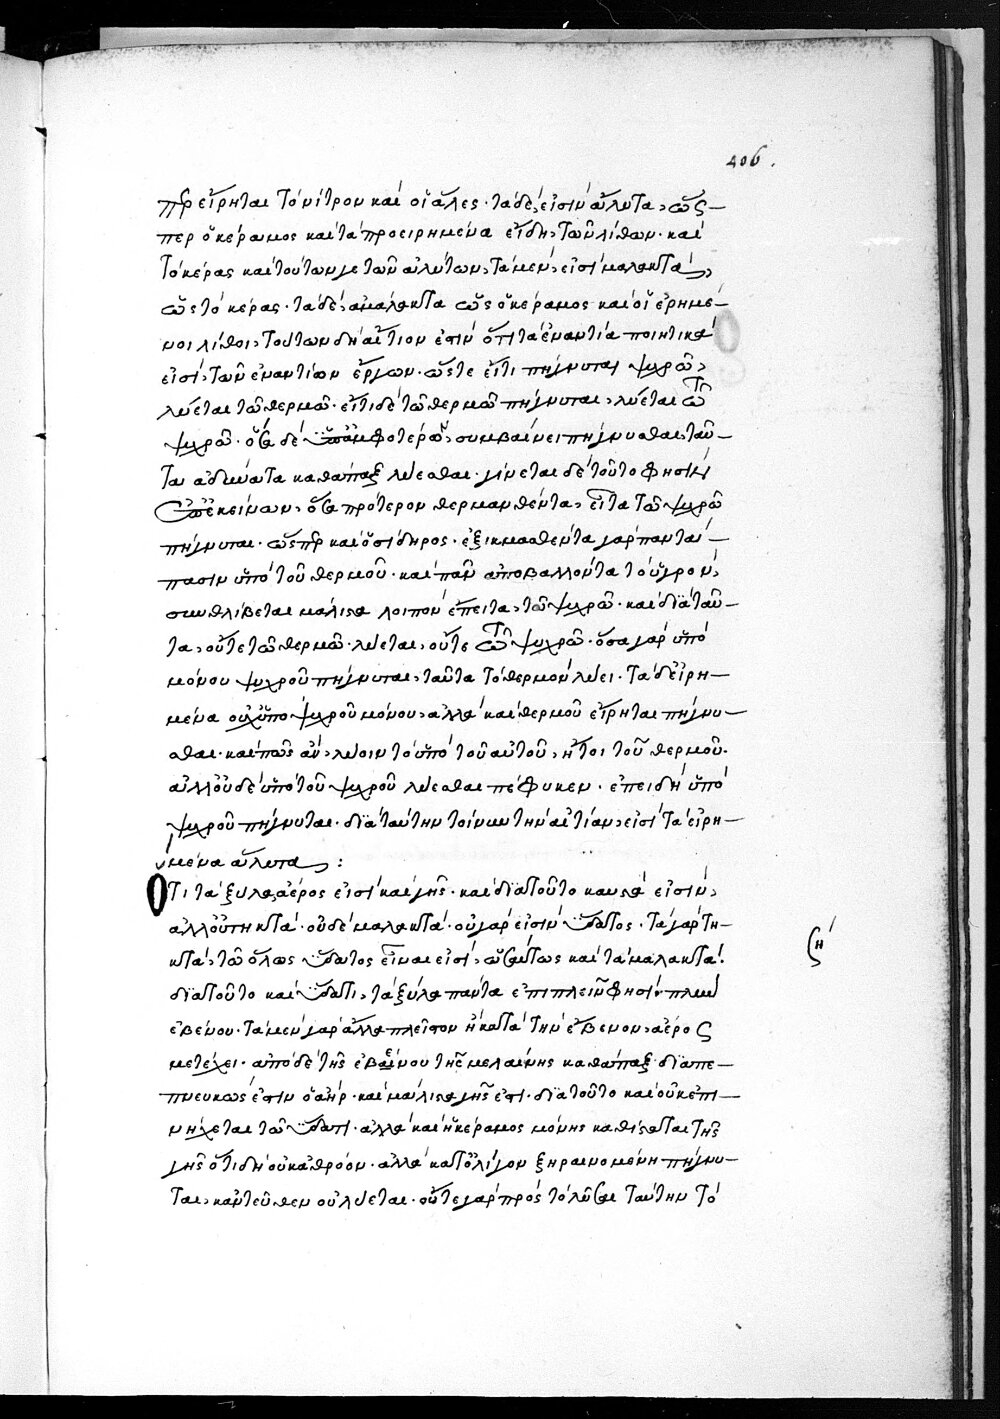 406.
περ εἴρηται τὸ νίτρον καὶ οἱ ἅλες· τὰ δέ, εἰσὶν ἄλυτα, ὥς—
περ ὁ κέραμος καὶ τὰ προειρημένα εἴδη, τῶν λίθων· καὶ
τὸ κέρας καὶ τούτων γε τῶν ἀλύτων, τὰ μέν, εἰσὶ μαλακτά,
ὥς τὸ κέρας· τὰ δέ, ἀμάλακτα ὥς ὁ κέραμος καὶ οἱ εἰρημέ—
νοι λίθοι, τούτων δὴ αἴτιον ἐστὶν ὅτι τὰ ἐναντία ποιητικά
εἰσί, τῶν ἐναντίων ἔργων· ὥστε εἴ τι πήγνυται ψυχρῶ,
λύεται τῶ θερμῶ· εἴ τι δὲ τῶ θερμῶ πήγνυται, λύεται τῶ
ψυχρῶ· ὅσα δὲ ὑπ' ἀμφοτέρων, συμβαίνει πήγνυσθαι, ταῦ—
τα ἀδύνατα καθάπαξ λύεσθαι· γίνεται δὲ τοῦτο φησὶν
ἐπ' ἐκείνων, ὅσα πρότερον θερμανθέντα, εἶτα τῶ ψυχρῶ
πήγνυται· ὥσπερ καὶ ὁ σίδηρος· ἐξικμασθέντα γὰρ παντά—
πασιν ὑπὸ τοῦ θερμοῦ· καὶ πᾶν ἀποβαλλόντα τὸ ὑγρόν,
συνθλίβεται μάλιστα λοιπὸν ἔπειτα, τῶ ψυχρῶ· καὶ διὰ ταῦ—
τα, οὔτε τῶ θερμῶ· λύεται, οὔτε τῶ ψυχρῶ· ὅσα γὰρ ὑπὸ
μόνου ψυχροῦ πήγνυται, ταῦτα τὸ θερμὸν λύει· τὰ δ' εἰρη—
μένα οὐχ ὑπὸ ψυχροῦ μόνου, ἀλλὰ καὶ θερμοῦ εἴρηται πήγνυ—
σθαι· καὶ πῶς ἂν, λύοιντο ὑπὸ τοῦ αὐτοῦ, ἤτοι τοῦ θερμοῦ·
ἀλλ' οὐδὲ ὑπὸ τοῦ ψυχροῦ λύεσθαι πέφυκεν· ἐπειδὴ ὑπὸ
ψυχροῦ πήγνυται· διὰ ταύτην τοίνυν τὴν αἰτίαν, εἰσὶ τὰ εἰρη—
μένα ἄλυτα :
Ὅτι τὰ ξύλα, ἀέρος εἰσὶ καὶ γῆς· καὶ διὰ τοῦτο καυστά εἰσίν,
ἀλλ' οὐ τηκτά· οὐδὲ μαλακτά· οὐ γάρ εἰσιν ὕδατος· τὰ γὰρ τη—
κτά, τῶ ὅλως ὕδατος εἶναι εἰσί, ὡσαύτως καὶ τὰ μαλακτά·
διὰ τοῦτο καὶ ὕδατι, τὰ ξύλα πάντα ἐπιπλεῖν φησὶν πλὴν
ἐβένου· τὰ μὲν γὰρ ἄλλα πλεῖστον ἢ κατὰ τὴν ἔβενον, ἀέρος
μετέχει· ἀπὸ δὲ τῆς ἐβένου τῆς μελαίνης καθάπαξ διαπε—
πνευκώς ἐστιν ὁ ἀήρ· καὶ μάλιστα γῆς ἐστι· διὰ τοῦτο καὶ οὐκ ἐπι—
νήχεται τῶ ὕδατι· ἀλλὰ καὶ ἡ κέραμος μόνης καθίσταται τῆς
γῆς ὅτι δὴ οὐκ ἀθρόον· ἀλλὰ κατ' ὀλίγον ξηραινομένη πήγνυ—
ται, κἀντεῦθεν οὐ λύεται· οὔτε γὰρ πρὸς τὸ λῦσαι ταύτην τὸ
ζη